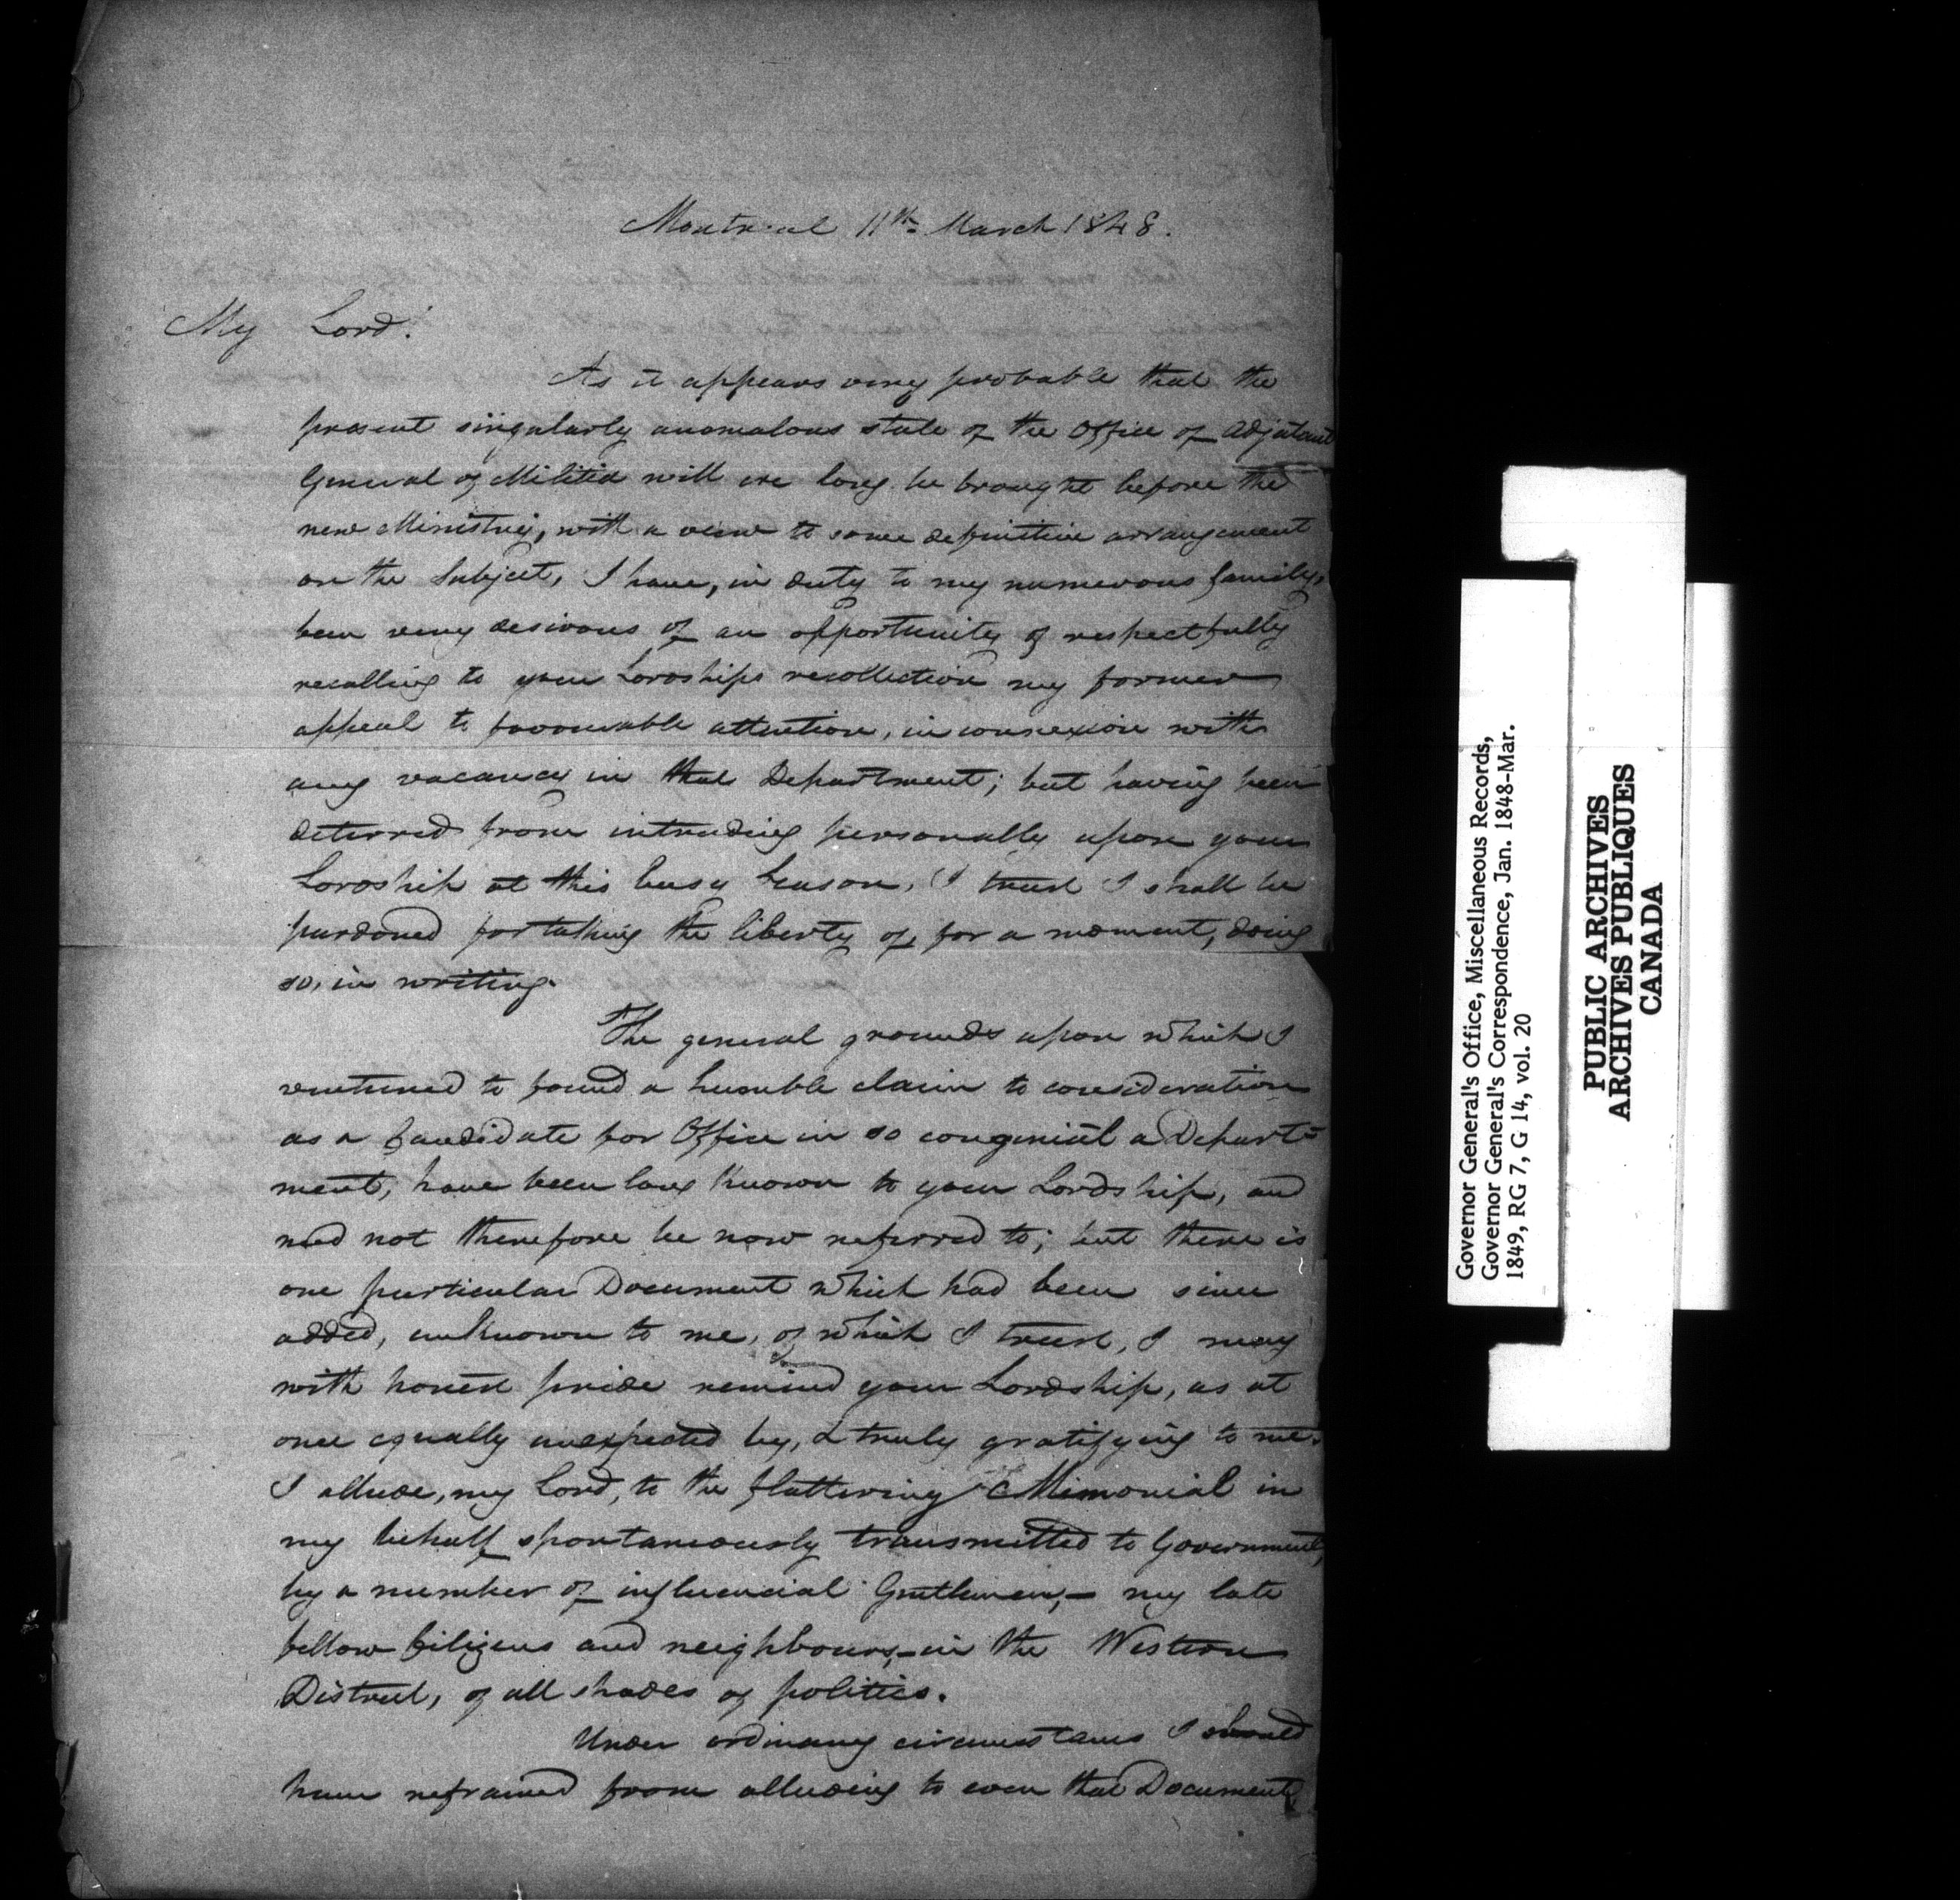 Montreal 11th March 1848.
My Lord!
As it appears very probable that the
present singularly anomalous state of the Office of Adjutant
General of Militia will ere long be brought before the
new Ministry, with a view to some definitive arrangement
on the Subject, I have, in duty to my numerous family,
been very desirous of an opportunity of respectfully
recalling to your Lordships recollection my former
appeal to favourable attention, in connexion with
any vacancy in that Department; but having been
deterred from intruding personally upon your
Lordship at this busy Season, I trust I shall be
pardoned for taking the liberty of, for a moment, doing
so, in writing.
The general grounds upon which I
ventured to found a humble claim to consideration
as a Candidate for Office in so congenial a Depart=
ment, have been long known to your Lordship, and
need not therefore be now referred to; but there is
one particular Document which had been since
added, unknown to me, of which I trust, I may
with honest pride remind your Lordship, as at
once equally unexpected by, & truly gratifying to me.
I allude, my Lord, to the flattering Memorial in
my behalf spontaneously transmitted to Government,
by a number of influencial Gentlemen,- my late
fellow Citizens and neighbours,-in the Western
District, of all shades of politics.
Under ordinary circumstances I should
have refrained from alluding to even that Document,
Governor General's Office, Miscellaneous Records,
Governor General's Correspondence, Jan. 1848-Mar.
1849, RG 7, G 14, vol. 20
PUBLIC ARCHIVES
ARCHIVES PUBLIQUES
CANADA